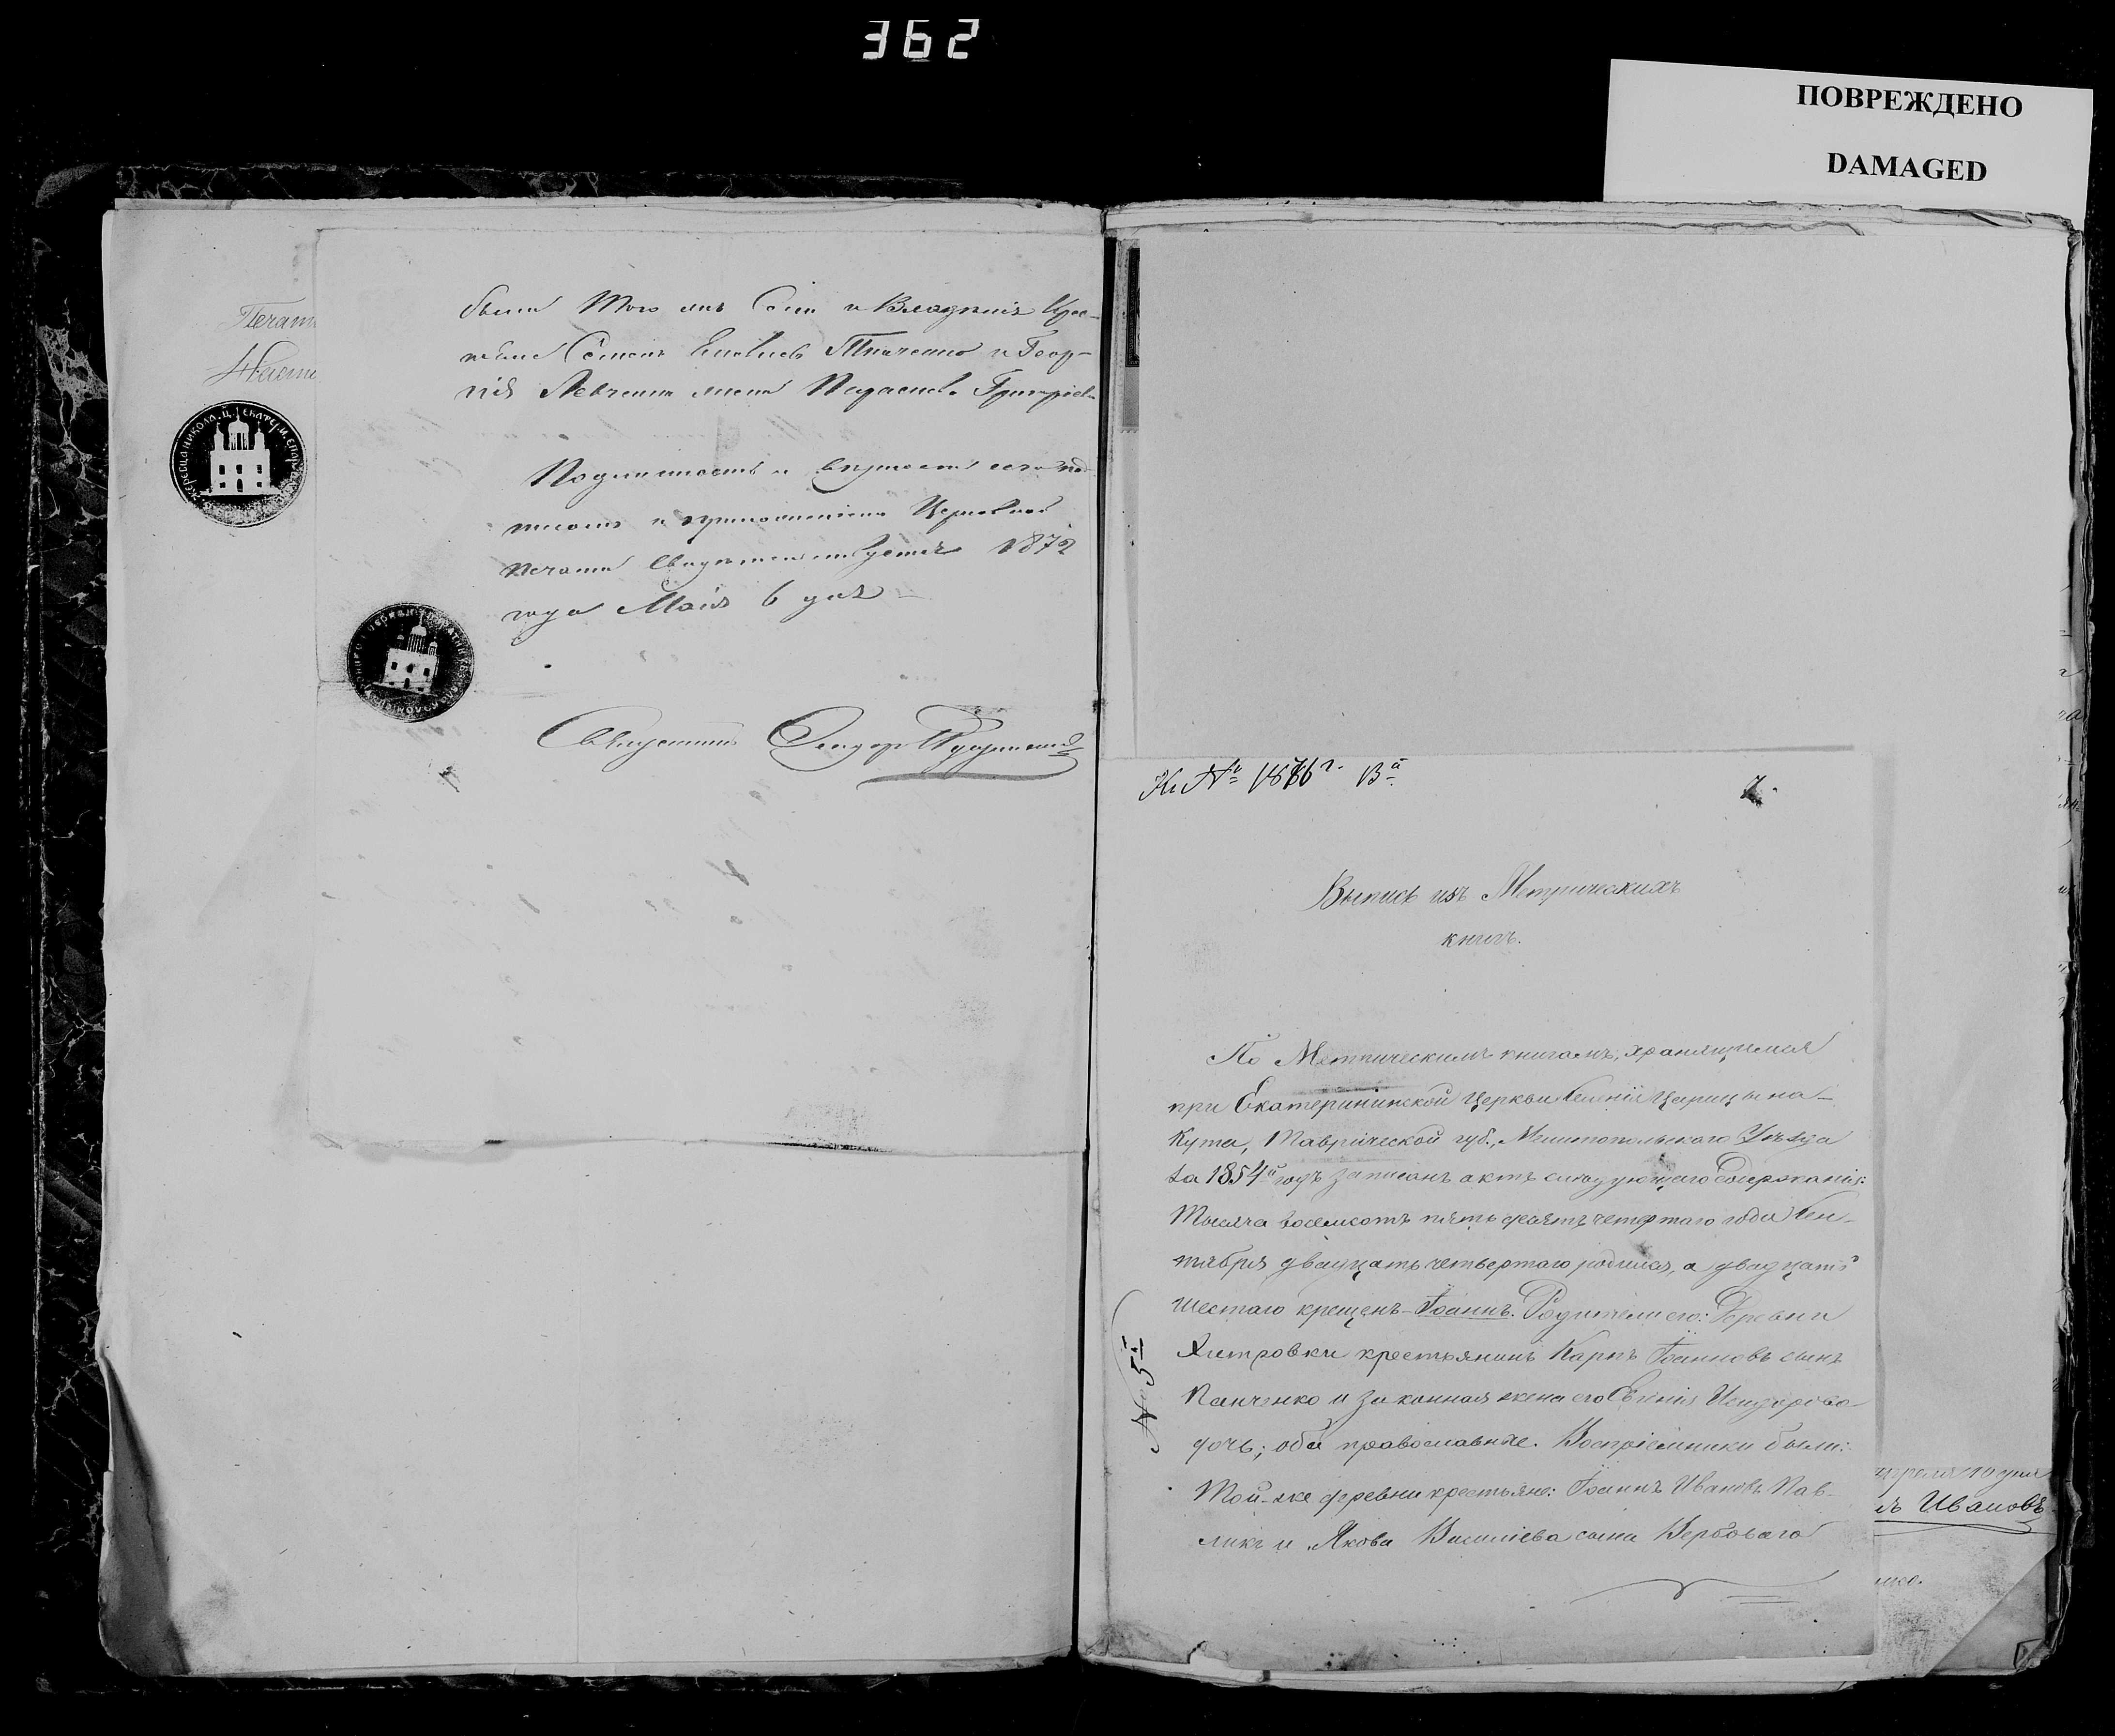 362
ПОВРЕЖДЕНО
DAMAGED
Печати
были того же Села и Владѣнія Крес-
тьяне Семенъ Ткаченко и Геор-
гія Левченка жена Параскева Григоріева
Подлинность и вѣрность сего под-
писомъ и приложеніемъ Церковной
печати свидѣтельствуется 1872
года Маія 6 дня
Священникъ
Къ № 1876 г. Ва
7.
Выпись изъ Метрическихъ
книгъ.
По Метрическимъ книгамъ, хранящимся
при Екатерининской Церкви Селенія Царицына-
Кута, Таврической губ., Мелитопольскаго Уѣзда
за 1854й годъ записанъ актъ слѣдующаго содержанія:
Тысяча восемсотъ пятьдесятъ четвертаго года Сен-
тября двадцать четвертаго родился, а двадцать
шестаго крещенъ - Іоаннъ. Родители его: Деревни
крестьянинъ Карпъ Іоанновъ сынъ
Панченко и законная жена его Евгенія Исидорова
дочь; оба православные. Воспріемники были:
Той-же деревни крестьяне: Іоаннъ Ивановъ Пав-
ликъ и Якова Василіева сына Вербоваго
№ 5й
апреля 10 дня
Ивановъ